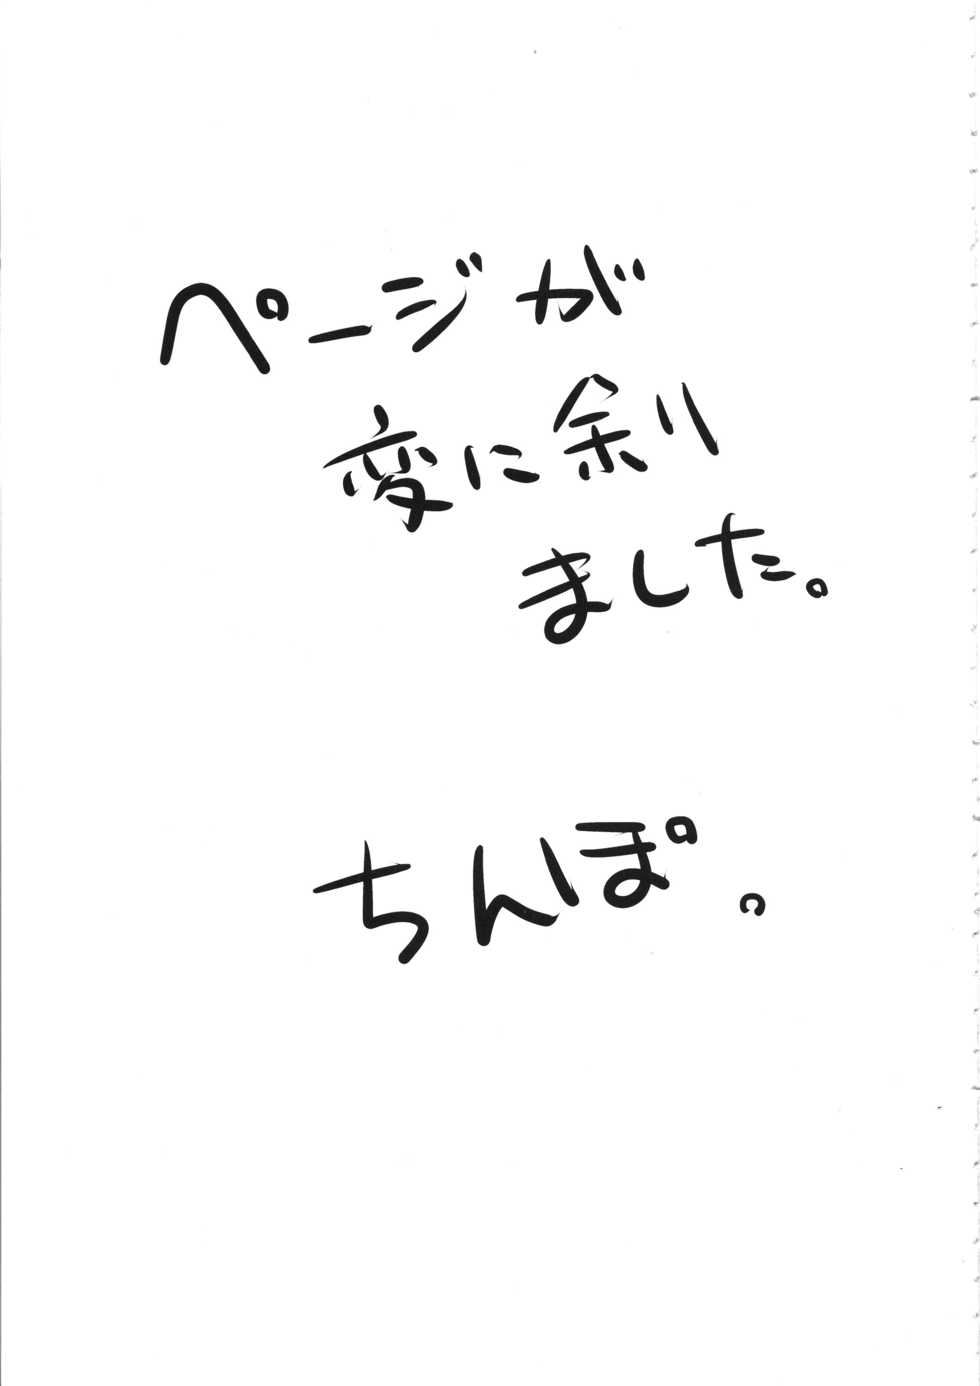 ページが
変に余り
ました。
ちんぽ。